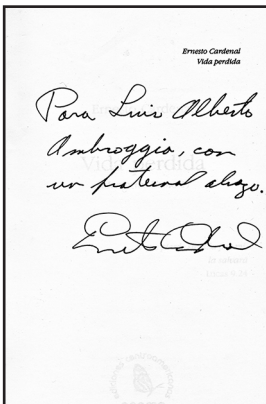 Ernesto Cardenal
Vida perdida
Para Luis Alberto
Ambroggio, con
un fraternal abrazo.
Ernesto Cardenal